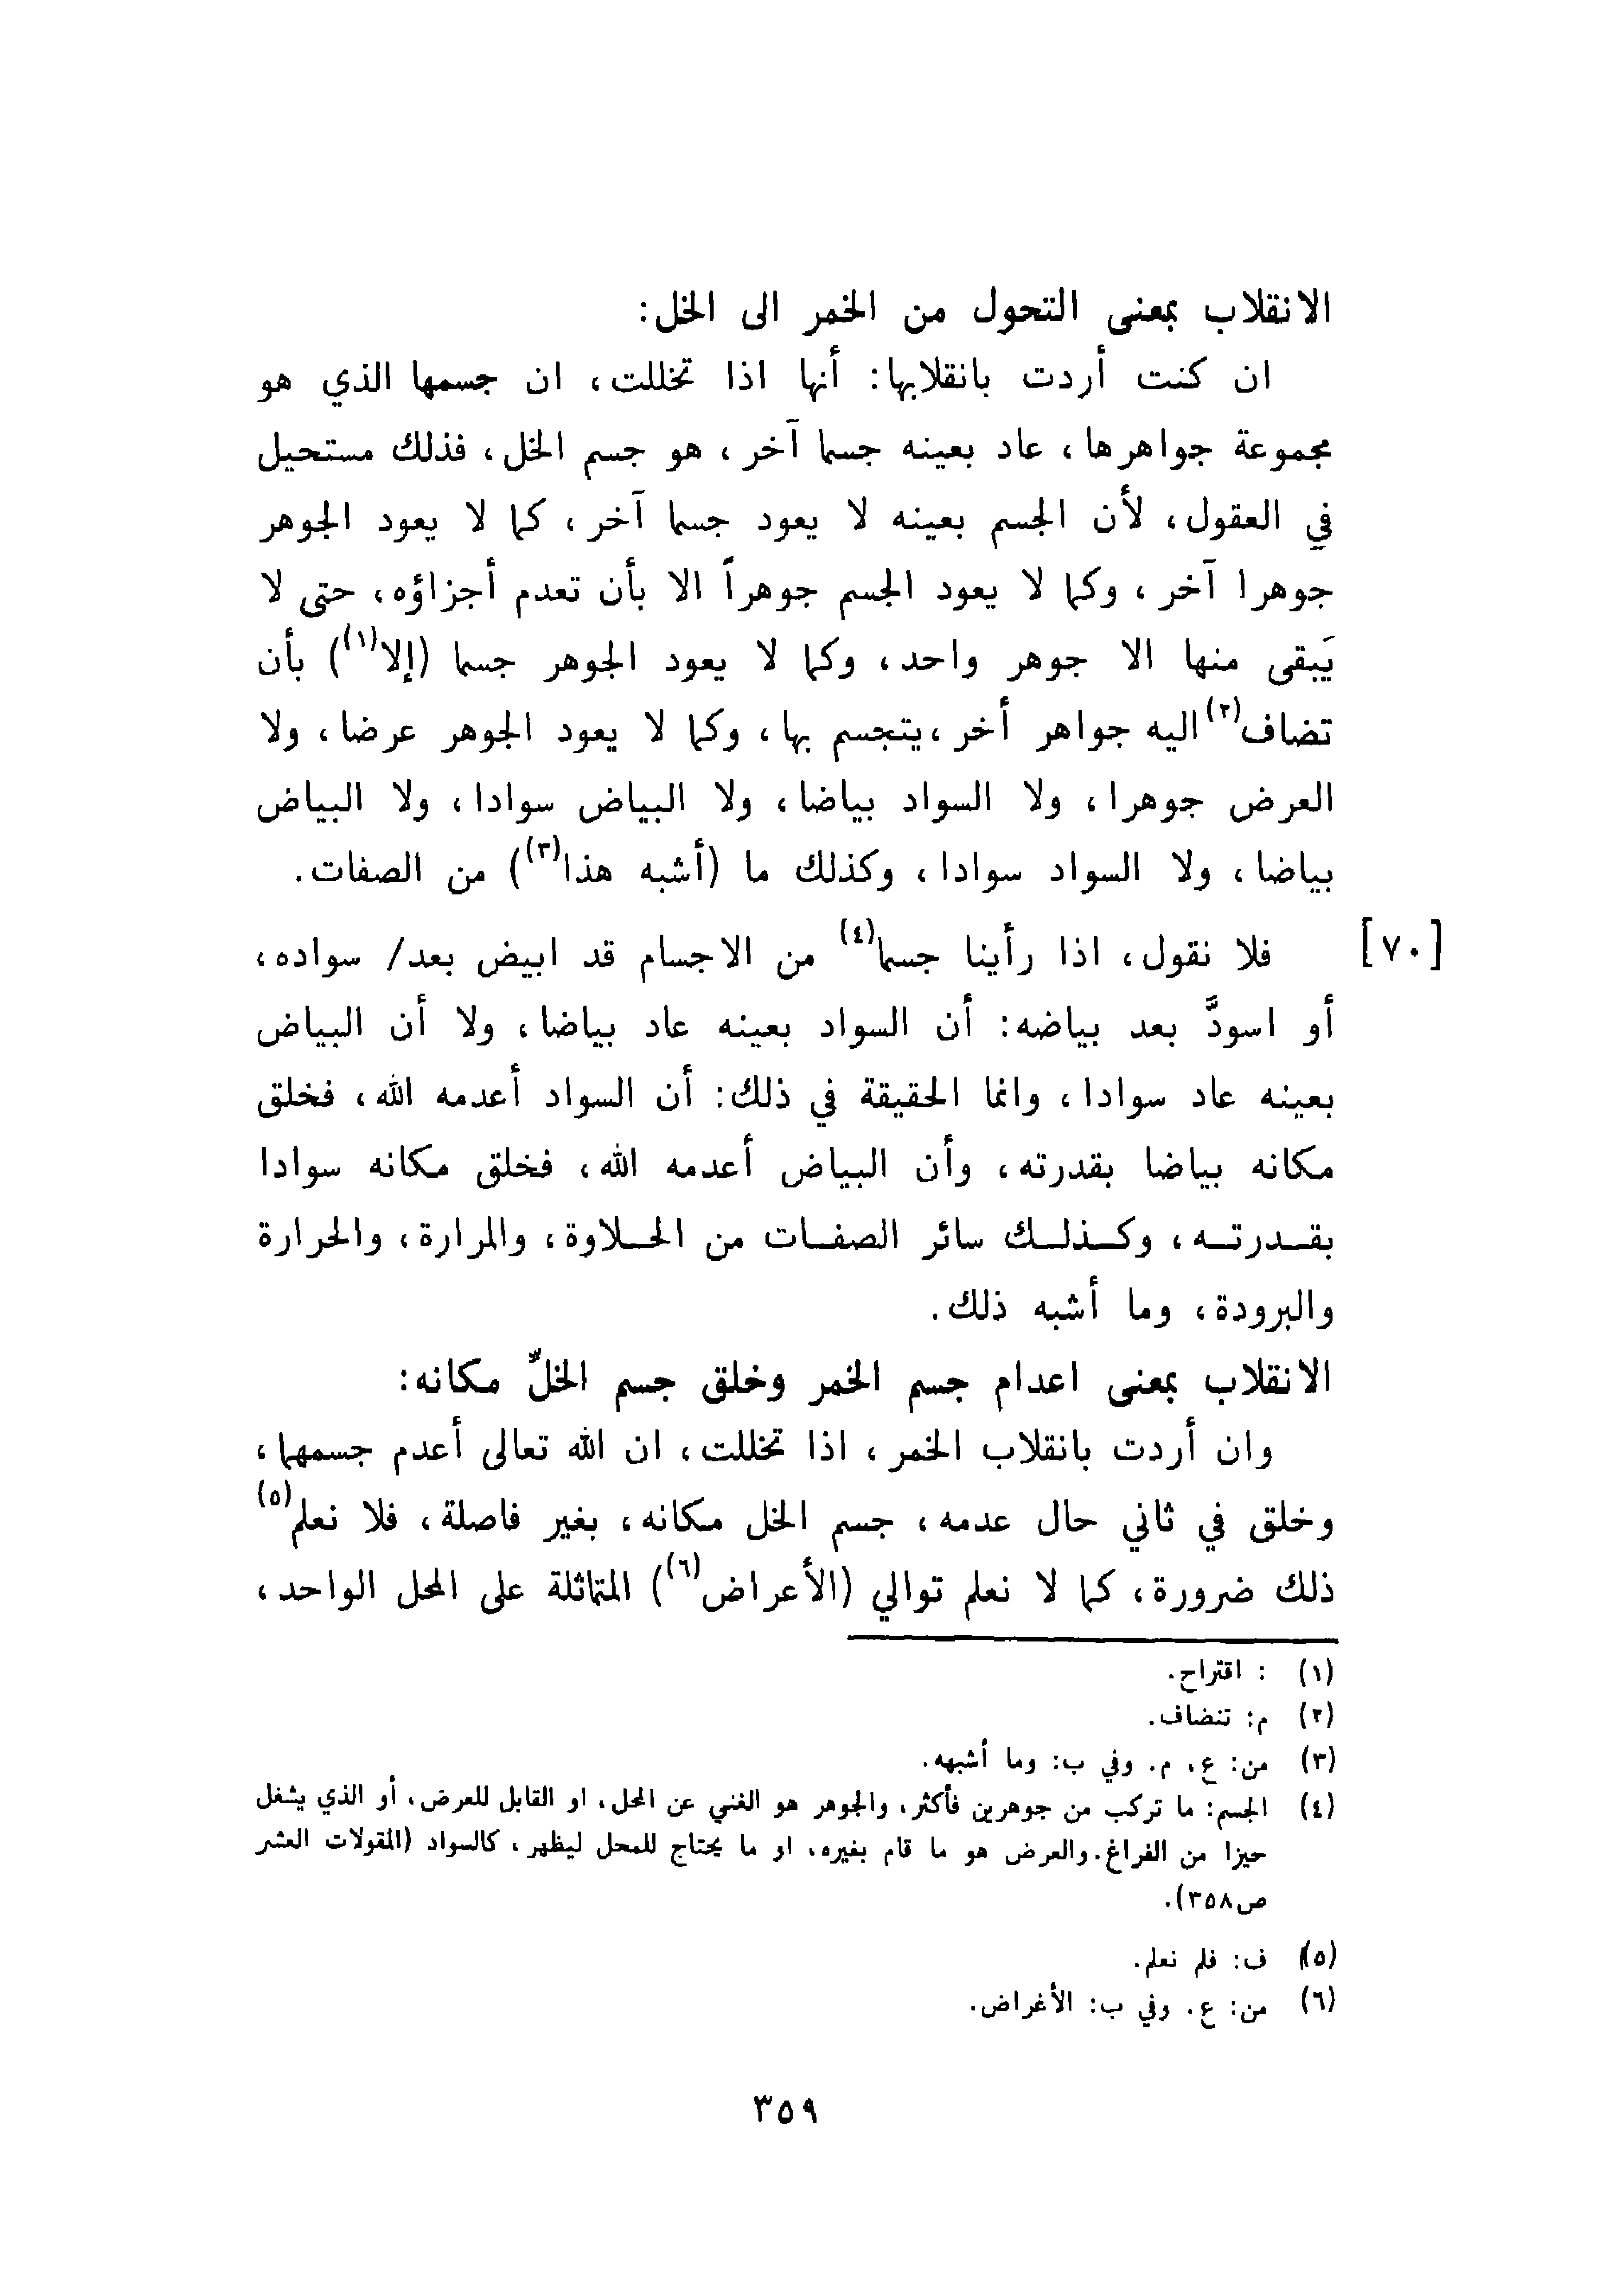 الانقلاب بمعنى التحول من الخمر الى الخل:
ان كنت أردت بانقلابها: أنها اذا تخللت، ان جسمها الذي هو
مجموعة جواهرها، عاد بعينه جسما آخر، هو جسم الخل، فذلك مستحيل
في العقول، لأن الجسم بعينه لا يعود جسما آخر، كما لا يعود الجوهر
جوهرا آخر، وكما لا يعود الجسم جوهراً الا بأن تعدم أجزاؤه، حتى لا
يَبقى منها الا جوهر واحد، وكما لا يعود الجوهر جسما (إلا(١)) بأن
تضاف(٢) اليه جواهر أخر، يتجسم بها، وكما لا يعود الجوهر عرضا، ولا
العرض جوهرا، ولا السواد بياضا، ولا البياض سوادا، ولا البياض
بياضا، ولا السواد سوادا، وكذلك ما (أشبه هذا(٣)) من الصفات.
[٧٠] فلا نقول، اذا رأينا جسما(٤) من الاجسام قد ابيض بعد/ سواده،
أو اسودَّ بعد بياضه: أن السواد بعينه عاد بياضا، ولا أن البياض
بعينه عاد سوادا، وانما الحقيقة في ذلك: أن السواد أعدمه الله، فخلق
مكانه بياضا بقدرته، وأن البياض أعدمه الله، فخلق مكانه سوادا
بقـدرتـه، وكـذلـك سائر الصفـات من الحـلاوة، والمرارة، والحرارة
والبرودة، وما أشبه ذلك.
الانقلاب بمعنى اعدام جسم الخمر وخلق جسم الخلّ مكانه:
وان أردت بانقلاب الخمر، اذا تخللت، ان الله تعالى أعدم جسمهما،
وخلق في ثاني حال عدمه، جسم الخل مكانه، بغير فاصلة، فلا نعلم(٥)
ذلك ضرورة، كما لا نعلم توالي (الأعراض(٦)) المتماثلة على المحل الواحد،
(١) : اقتراح.
(٢) م: تنضاف.
(٣) من: ع، م. وفي ب: وما أشبهه.
(٤) الجسم: ما تركب من جوهرين فأكثر، والجوهر هو الغني عن المحل، او القابل للعرض، أو الذي يشغل
حيزا من الفراغ. والعرض هو ما قام بغيره، او ما يحتاج للمحل ليظهر، كالسواد (المقولات العشر
ص٣٥٨).
(٥) ف: فلم نعلم.
(٦) من: ع. وفي ب: الأغراض.
٣٥٩